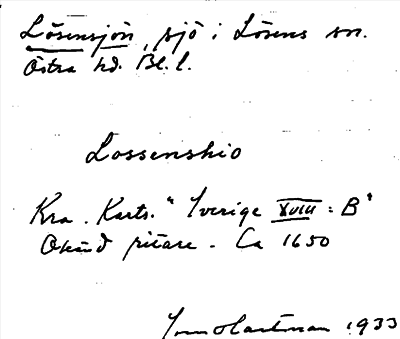 Lösensjön, sjö i Lösens sn.
Östra hd. Bl. l.
Lossenshio
Kra. Karts. "Sverige XVIII: B"
Okänd ritare. Ca 1650
1933